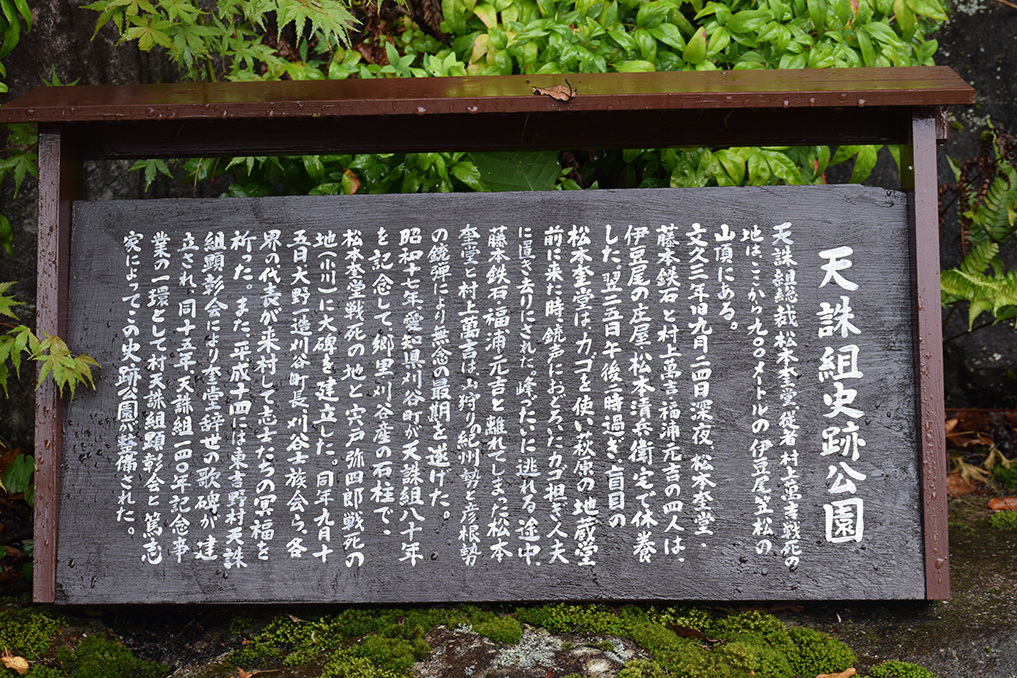 天誅組史跡公園
天誅組総裁松本奎堂、従者村上萬吉戦死の
地は、ここから九〇〇メートルの伊豆尾笠松の
山頂にある。
文久三年旧九月二四日深夜、松本奎堂・
藤本鉄石と村上萬吉・福浦元吉の四人は、
伊豆尾の庄屋、松本清兵衛宅で休養
した。翌二五日午後二時過ぎ、盲目の
松本奎堂は、カゴを使い萩原の地蔵堂
前に来た時、銃声におどろいたカゴ担ぎ人夫
に置き去りにされた。峰づたいに逃れる途中、
藤本鉄石・福浦元吉と離れてしまった松本
奎堂と村上萬吉は山狩りの紀州勢と彦根勢
の銃弾により無念の最期を遂げた。
昭和十七年、愛知県刈谷町が天誅組八十年
を記念して郷里刈谷産の石柱で、
松本奎堂戦死の地と宍戸弥四郎戦死の
地(小川)に大碑を建立した。同年九月十
五日大野一造刈谷町長、刈谷士族会ら、各
界の代表が来村して志士たちの冥福を
祈った。また、平成十四には東吉野村天誅
組顕彰会により奎堂辞世の歌碑が建
立され、同十五年、天誅組一四〇年記念事
業の一環として村天誅組顕彰会と篤志
家によってこの史跡公園が整備された。